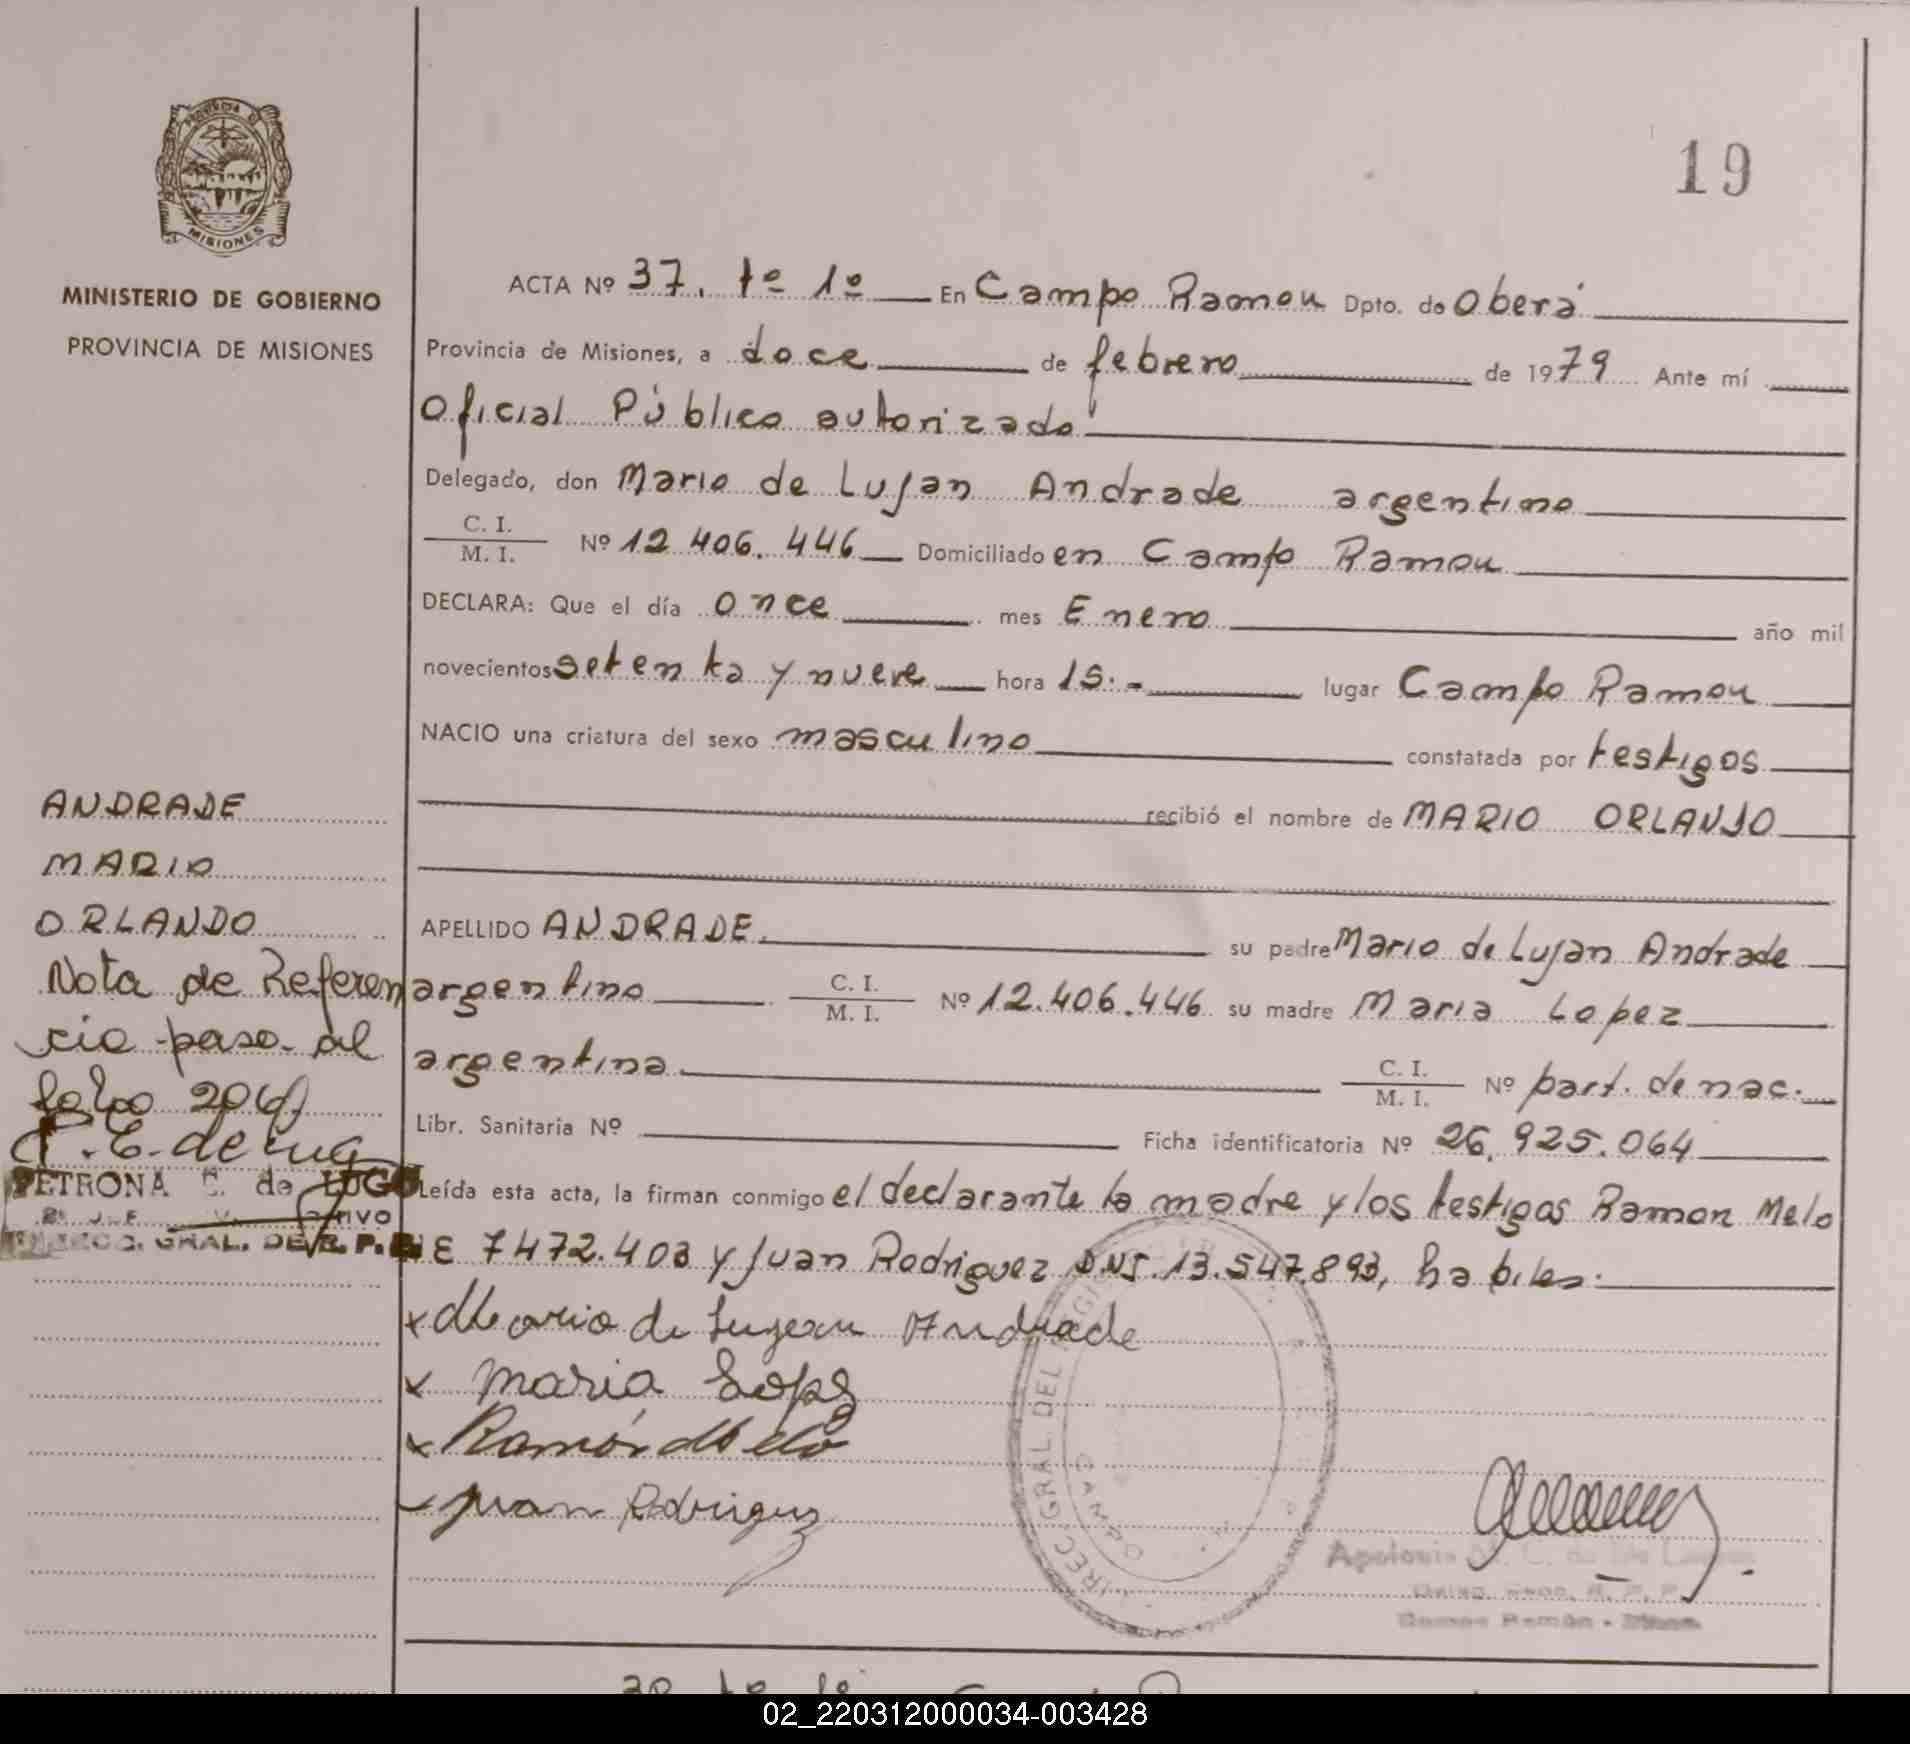 PROVINCIA DE
MISIONES
MINISTERIO DE GOBIERNO
PROVINCIA DE MISIONES
19
ACTA Nº 37. tº 1º En Campo Ramon Dpto. de Oberá
Provincia de Misiones, a doce de febrero de 1979 Ante mí
Oficial Público autorizado
Delegado, don Mario de Lujan Andrade argentino
C. I.
M. I. Nº 12 406. 446 Domiciliado en Campo Ramon
DECLARA: Que el día once mes Enero año mil
novecientos setenta y nueve hora 15.- lugar Campo Ramon
NACIO una criatura del sexo masculino constatada por testigos
recibió el nombre de MARIO ORLANDO
APELLIDO ANDRADE. su padre Mario de Lujan Andrade
argentino C. I.
M. I. Nº 12.406.446 su madre Maria Lopez
argentina C. I.
M. I. Nº part. de nac.
Libr. Sanitaria Nº Ficha identificatoria Nº 26.925.064
Leída esta acta, la firman conmigo el declarante la madre y los testigos Ramon Melo
E 7472.403 y Juan Rodriguez D.N.I. 13.547.893, habiles.
x Mario de Lujan Andrade
x Maria Lopz
x Ramón Melo
Juan Rodriguz
ANDRADE
MARIO
ORLANDO
Nota de Referen
cia paso al
folio 204
P. C. de Lug
PETRONA C. de LUGO
GRAL. DE R. P.
DIREC. GRAL. DEL REGI
CAMPO
Apolonia M. C. de
Deleg. R. P. P.
Campo Ramón - Mnes.
02_220312000034-003428